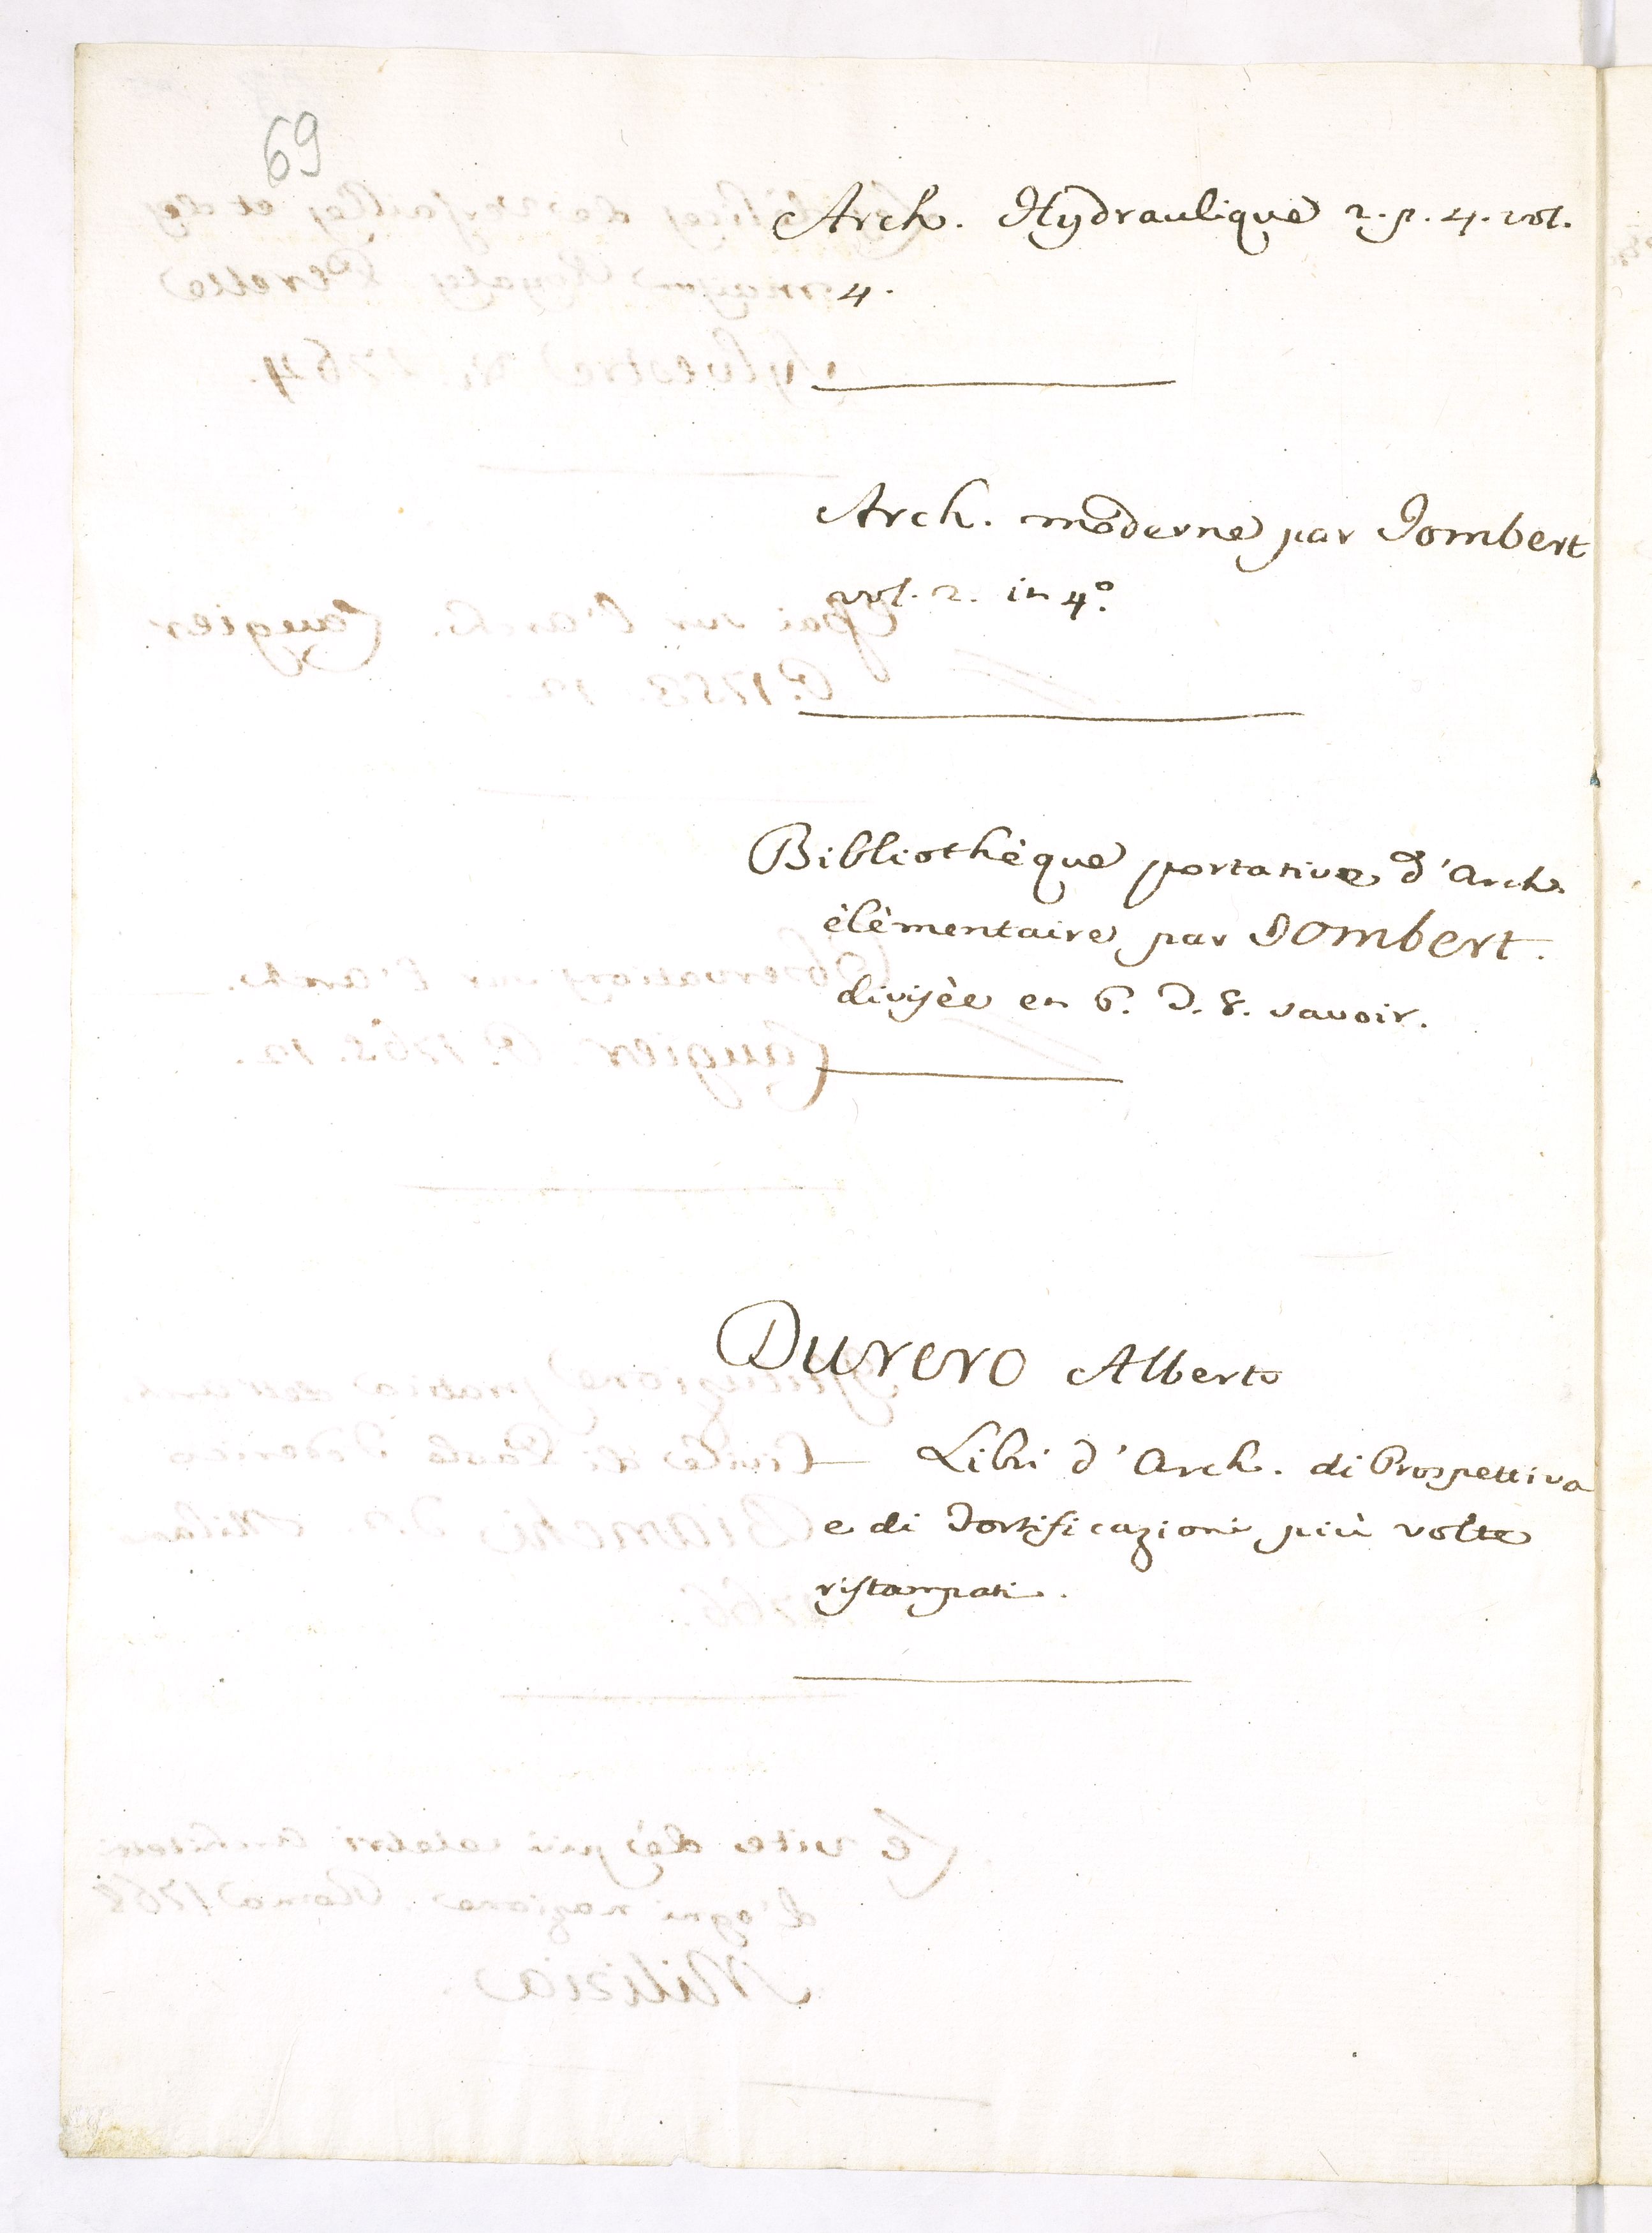 69
Arch. Hydraulique 2. p. 4. vol.
4.
Arch. moderne par Jombert
vol. 2. in 4.º
Bibliothèque portative d'Arch.
élèmentaire par Jombert.
divisèe en 6. P. 8. savoir.
Durero Alberto
— Libri d'Arch. di Prospettiva
e di Fortificazioni più volte
ristampati.